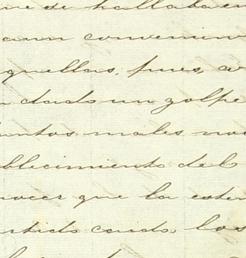 me se hallaban
aun convenien
quellas, pues, a
dado un golpe
tantos males no
blecimiento del
nocer que la este
rtido cando los